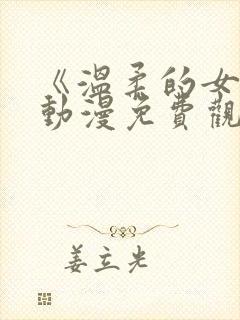 《溫柔的女
動漫免費觀
姜立光